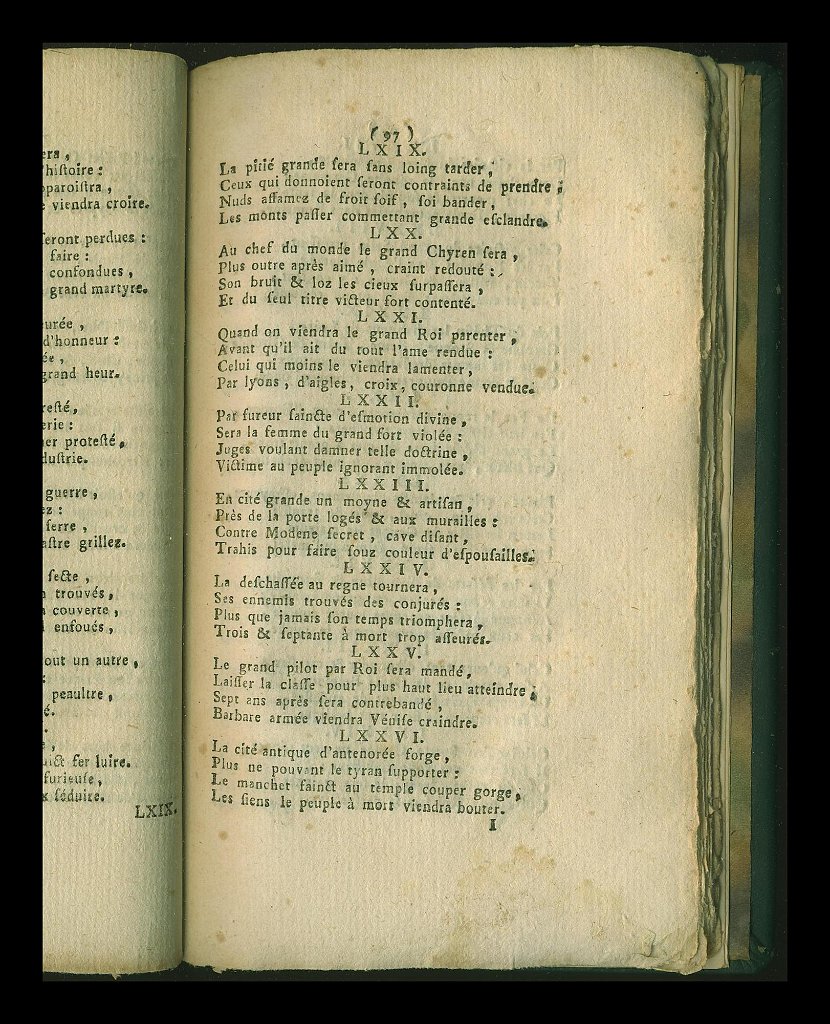 era ,
'hiſtoire :
paroiſtra ,
e viendra croire.
ſeront perdues :
faire :
confondues ,
grand martyre.
urée ,
d'honneur :
ée ,
grand heur.
reſté,
erie :
er proteſté,
duſtrie.
guerre ,
ez :
ſerre ,
aſtre grillez.
ſecte ,
trouvés ,
couverte ,
enfoués ,
out un autre ,
:
peaultre ,
é.
,
fer luire.
furieuſe,
ſéduire.
LXIX.
(97)
LXIX.
La pitié grande ſera ſans loing tarder ,
Ceux qui donnoient ſeront contraints de prendre ;
Nuds affamez de froit ſoif , ſoi bander ,
Les monts paſſer commettant grande eſclandre.
LXX.
Au chef du monde le grand Chyren ſera ,
Plus outre après aimé , craint redouté :
Son bruit & loz les cieux ſurpaſſera ,
Et du ſeul titre victeur fort contenté.
LXXI.
Quand on viendra le grand Roi parenter ,
Avant qu'il ait du tout l'ame rendue :
Celui qui moins le viendra lamenter ,
Par lyons , d'aigles , croix , couronne vendue.
LXXII.
Par fureur ſaincte d'eſmotion divine ,
Sera la femme du grand fort violée :
Juges voulant damner telle doctrine ,
Victime au peuple ignorant immolée.
LXXIII.
En cité grande un moyne & artiſan ,
Près de la porte logés & aux murailles :
Contre Modene ſecret , cave diſant ,
Trahis pour faire ſouz couleur d'eſpouſailles.
LXXIV.
La deſchaſſée au regne tournera ,
Ses ennemis trouvés des conjurés :
Plus que jamais ſon temps triomphera ,
Trois & ſeptante à mort trop aſſeurés.
LXXV.
Le grand pilot par Roi ſera mandé ,
Laiſſer la claſſe pour plus haut lieu atteindre ;
Sept ans après ſera contrebandé ,
Barbare armée viendra Véniſe craindre.
LXXVI.
La cité antique d'antenorée forge ,
Plus ne pouvant le tyran ſupporter :
Le manchet fainct au temple couper gorge ,
Les ſiens le peuple à mort viendra bouter.
I